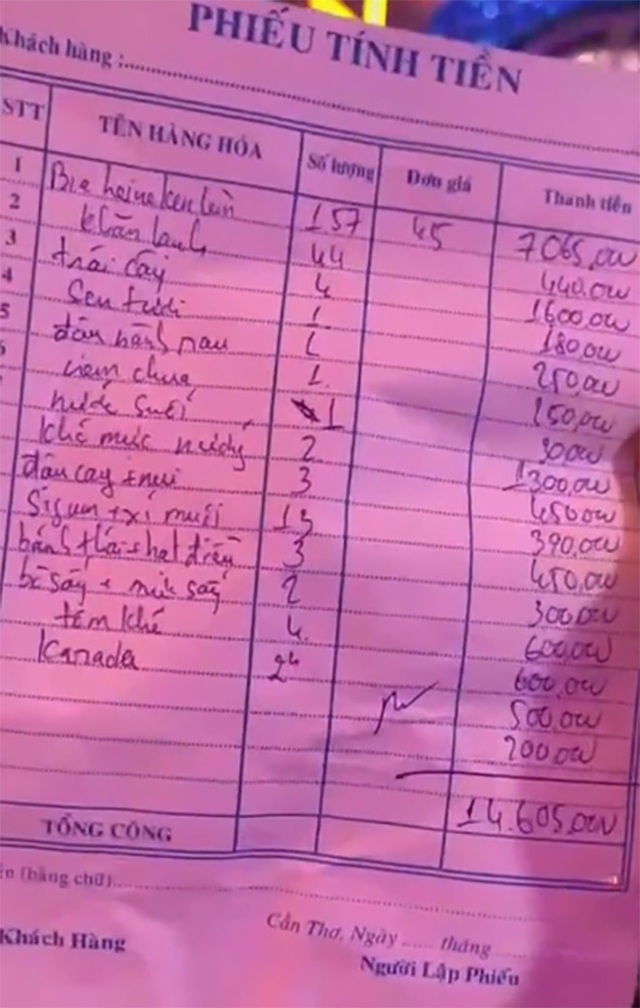 PHIẾU TÍNH TIỀN
Khách hàng :
STT TÊN HÀNG HÓA Số lượng Đơn giá Thanh tiền
1 Bia heineken lùn 157 45 7065,000
2 khăn lạnh 44 440.000
3 trái cây 4 1600,000
4 Sen tươi 1 180.000
5 1 250,000
6 nem chua 1. 150,000
nước Suối 1 30000
khô mực nướng 2 1300,000
3 450.000
xí muội 13 390,000
bánh + hạt điều 3 450,000
bò sấy + mực sấy 2 300.000
tôm khô 4. 600,000
Kanada 2h 600,000
500,000
200.000
14.605,000
TỔNG CỘNG
(bằng chữ)
Cần Thơ, Ngày ..... tháng
Khách Hàng Người Lập Phiếu